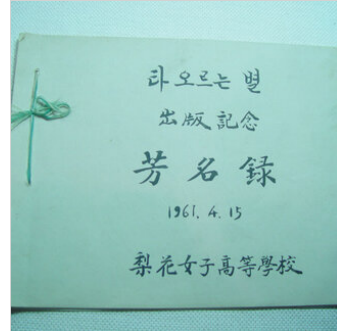 타오르는 별
出版記念
芳名錄
1961. 4. 15
梨花女子高等學校